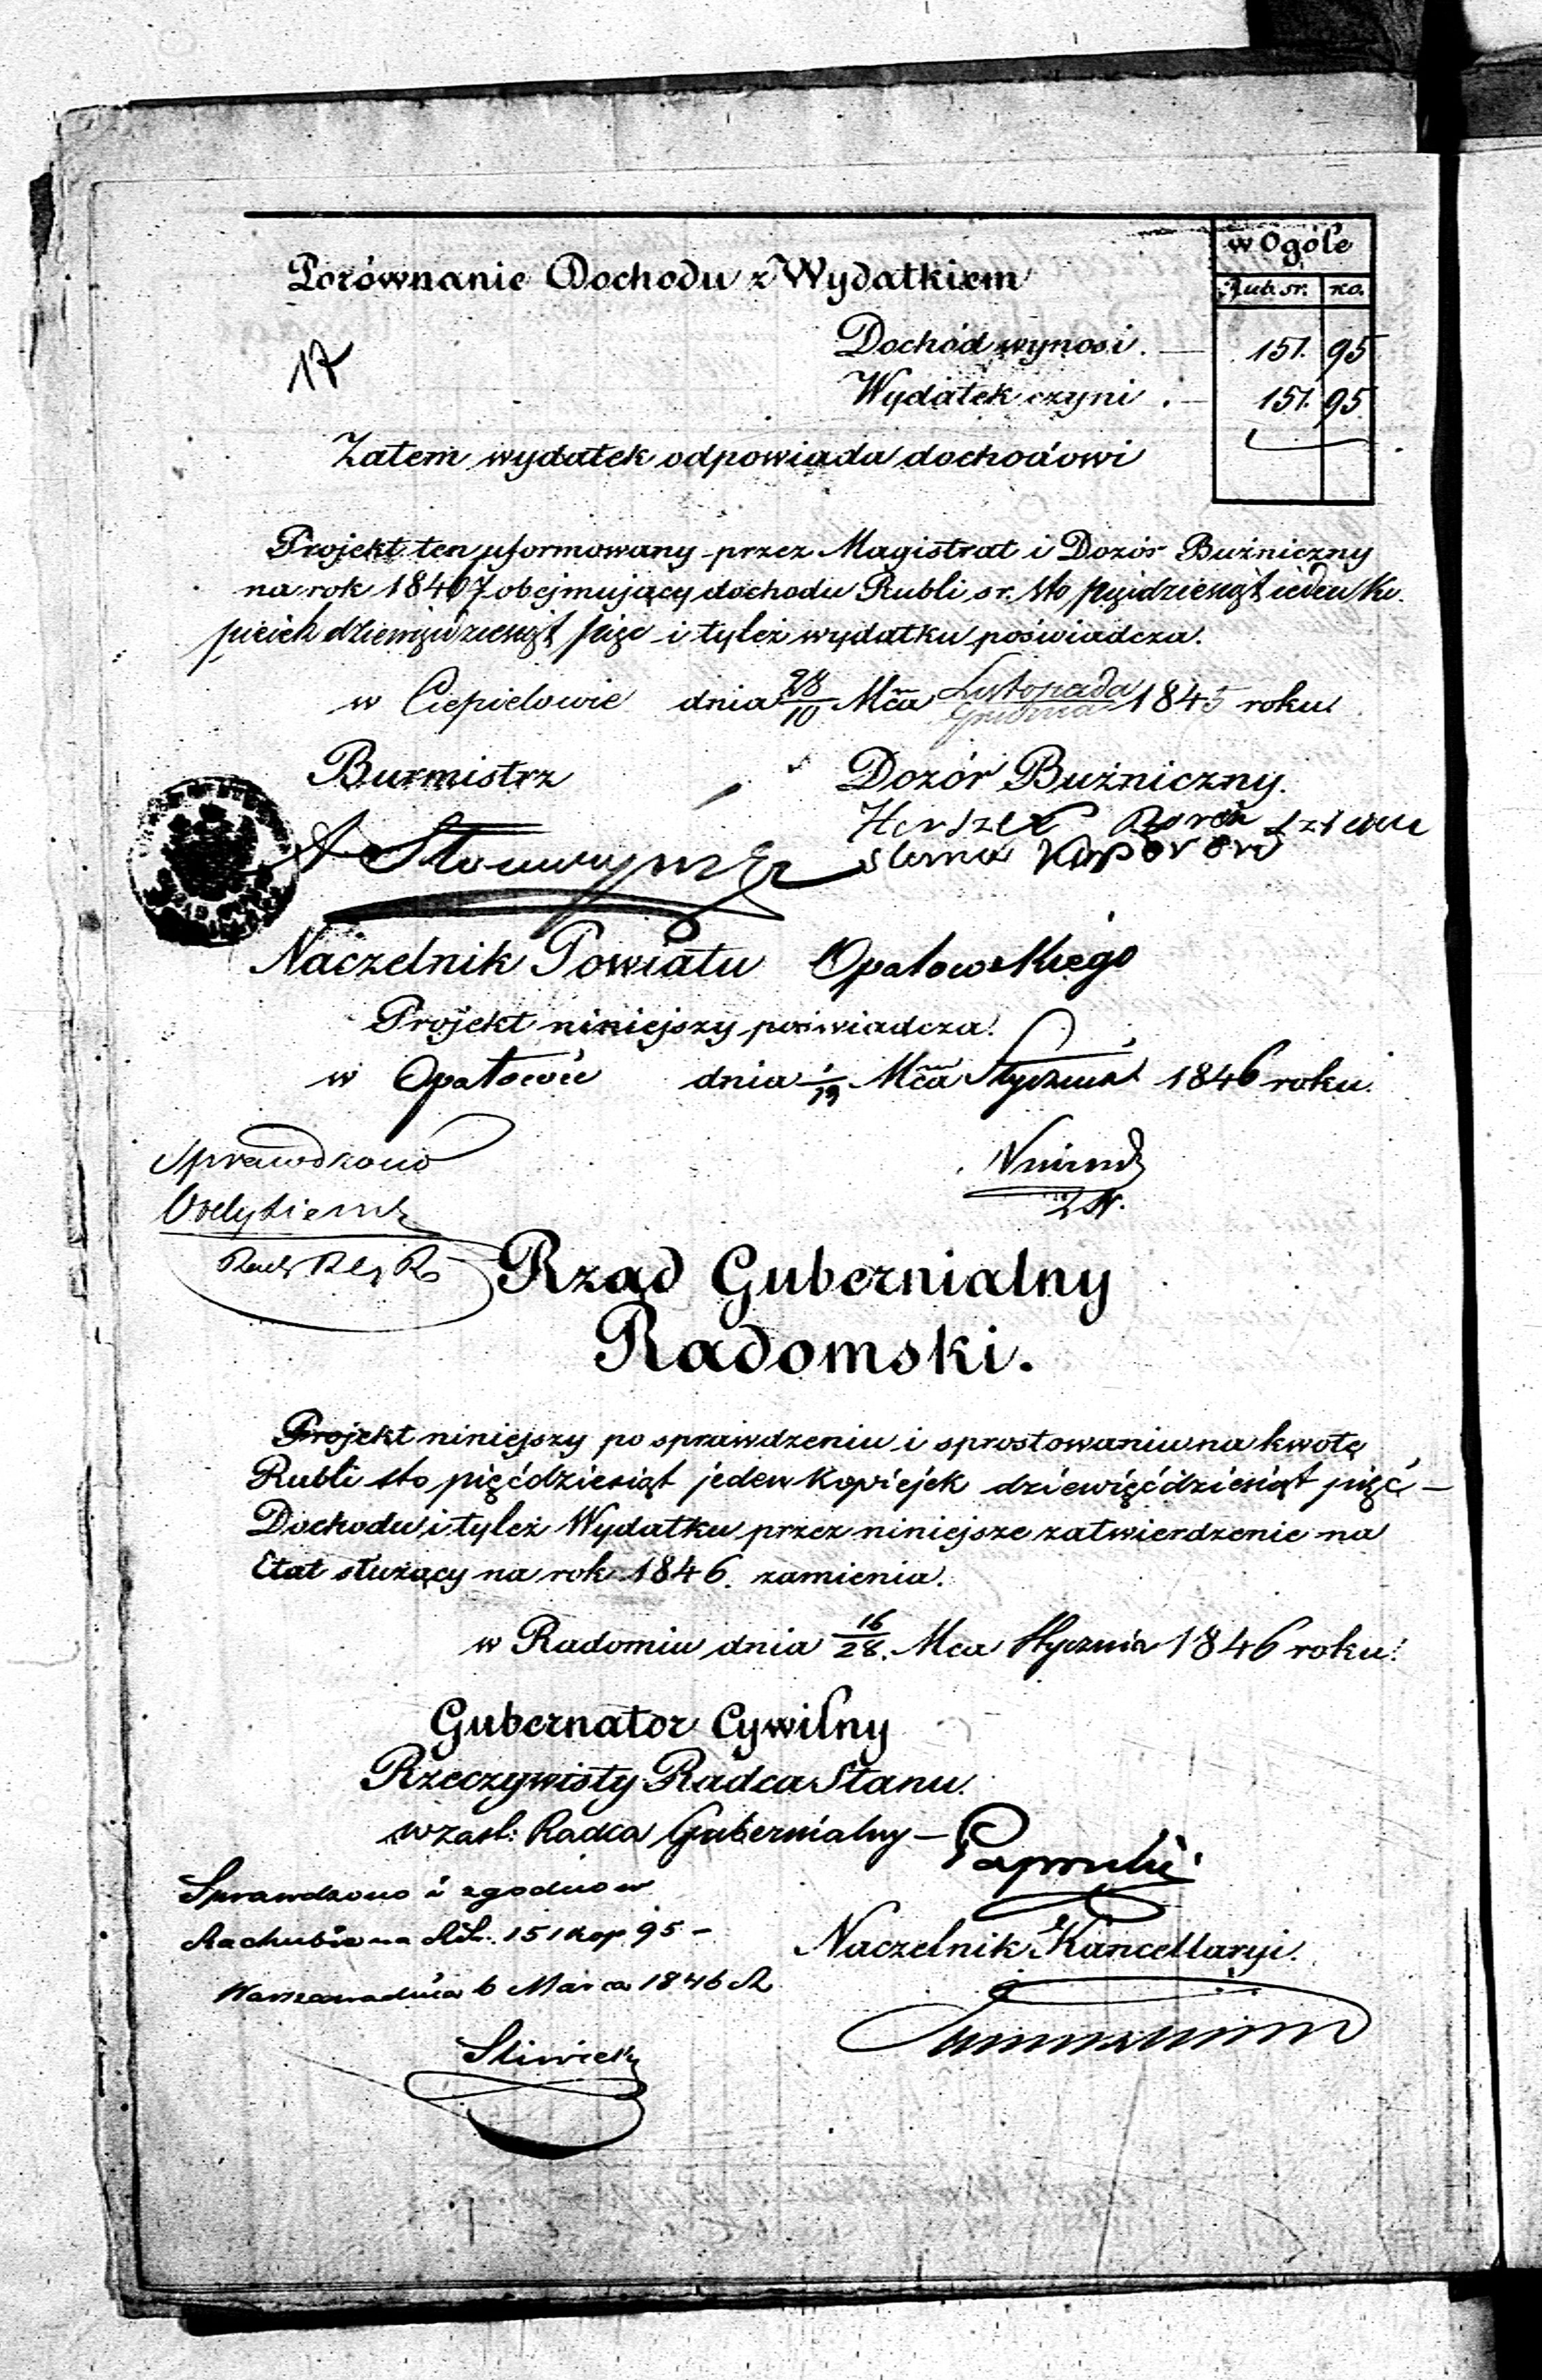 w Ogóle
Porównanie Dochodu z Wydatkiem
Rub. sr. ko.
17
Dochód wynosi. 151. 95
Wydatek czyni. 151. 95
Zatem wydatek odpowiada dochodowi
Projekt ten uformowany przez Magistrat i Dozór Bużniczny
na rok 1846/7 obejmujący dochodu Rubli sr. sto pięidziesiąt ieden ko
pieiek dziewięidziesiąt pięc i tyleż wydatku poświadcza.
w Ciepielowie dnia 28/10 Mca Listopada/Grudnia 1845 roku
Burmistrz Dozór Bużniczny.
Herszek
Naczelnik Powiatu Opatowskiego
Projekt niniejszy poświadcza.
w Opatowie dnia Mca Stycznia 1846 roku.
Sprawdzono
Rząd Gubernialny
Radomski.
Projekt niniejszy po sprawdzeniu i sprostowaniu na kwotę
Rubli sto pięćdziesiąt jeden kopiejek dziewięćdziesiąt pięć –
Dochodu i tyleż Wydatku przez niniejsze zatwierdzenie na
Etat służący na rok 1846. zamienia.
w Radomiu dnia 16/28. Mca Stycznia 1846 roku.
Gubernator Cywilny
Rzeczywisty Radca Stanu.
w zast: Radca Gubernialny –
Sprawdzono i zgodno w
Rachubie na 151 kop 95 –
Naczelnik Kancellaryi.
Warszawa dnia 6 Marca 1846 R
Sliwicki